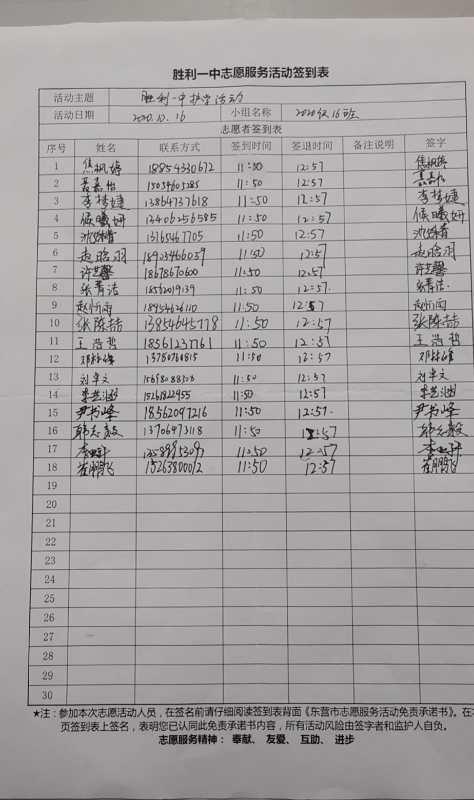 胜利一中志愿服务活动签到表
活动主题 胜利一中护学活动
活动日期 2020.10.16 小组名称 2020级16班
志愿者签到表
序号 姓名 联系方式 签到时间 签退时间 备注说明 签字
1 焦枫婷 18854330672 11:50 12:57 焦枫婷
2 嘉怡 11:50 12:57
3 李梦婕 13864737618 11:50 12:57 李梦婕
4 侯曦妍 13406256585 11:50 12:57 侯曦妍
5 13765467705 11:50 12:57
6 赵晗羽 11:50 12:57 赵晗羽
7 许艺馨 18678670600 11:50 12:57 许艺馨
8 张菁洁 11:50 12:57 张菁洁
9 赵忻雨 11:50 12:57 赵忻雨
10 张陈喆 11:50 12:57 张陈喆
11 王浩哲 18561233761 11:50 12:57 王浩哲
12 13780760815 11:50 12:57
13 刘卓文 11:50 12:57 刘卓文
14 11:50 12:57
15 18562097216 11:50 12:57
16 韩志毅 11:50 12:57 韩志毅
17 11:50 12:57
18 崔鹏飞 11:50 12:57 崔鹏飞
19
20
21
22
23
24
25
26
27
28
29
30
★注：参加本次志愿活动人员，在签名前请仔细阅读签到表背面《东营市志愿服务活动免责承诺书》。在
页签到表上签名，表明您已认同此免责承诺书内容，所有活动风险由签字者和监护人自负。
志愿服务精神：奉献、友爱、互助、进步